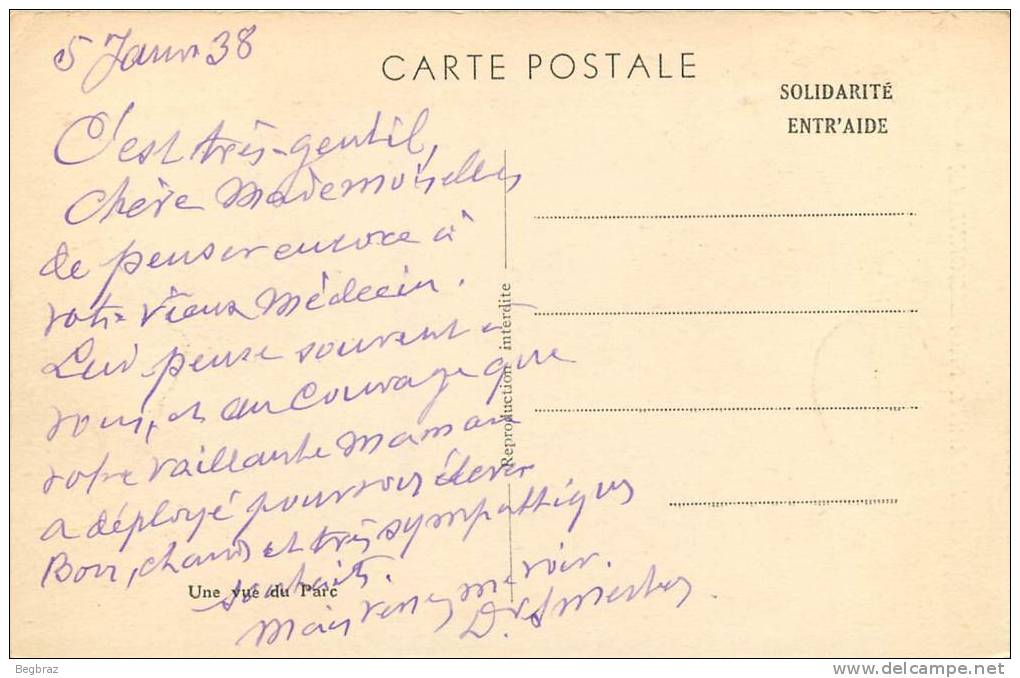 5 Janv 38
CARTE POSTALE
SOLIDARITÉ
ENTR'AIDE
C'est très-gentil,
Chère Mademoiselle,
de penser encore à
votre vieux Médecin.
Lui pense souvent à
vous, et au courage que
votre vaillante Maman
a déployé pour vous élever
Bons, chauds et très sympathiques
souhaits.
Mais venez me voir.
Dr
Reproduction interdite
Une vue du Parc
Begbraz
delcampe.net